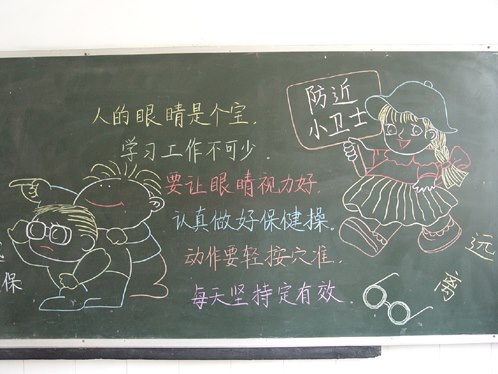 防近
小卫士
人的眼睛是个宝.
学习工作不可少.
要让眼睛视力好.
认真做好保健操.
动作要轻按穴准.
每天坚持定有效.
保
远
离